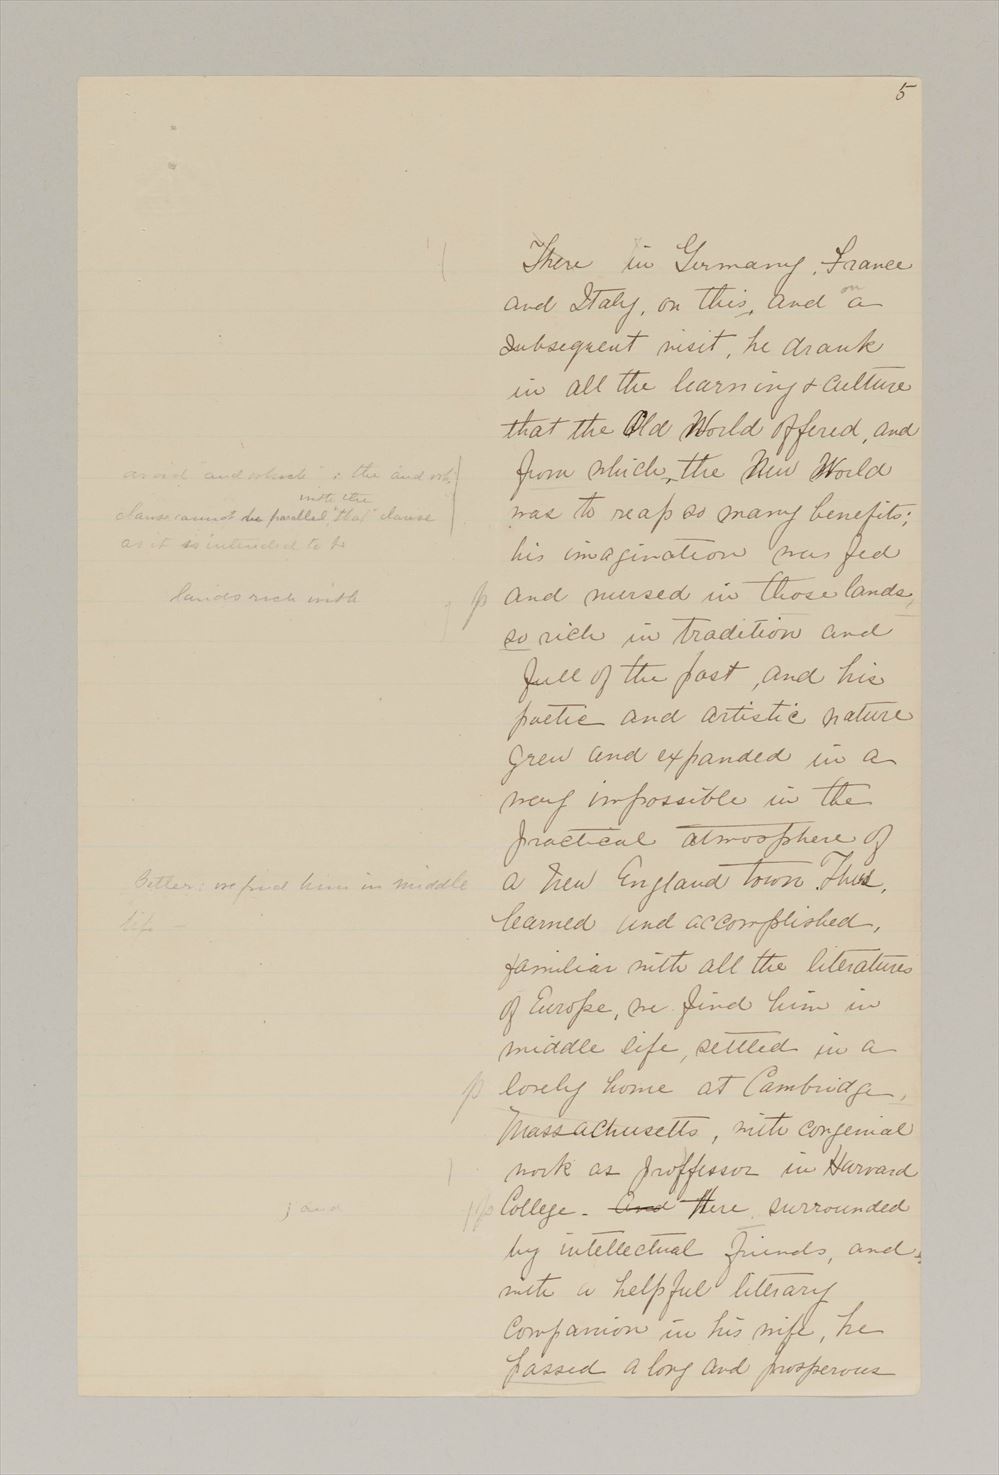 5
There in Germany, France
and Italy, on this, and on a
subsequent visit, he drank
in all the learning & culture
that the Old World offered, and
from which, the New World
was to reap so many benefits;
his imagination was fed
and nursed in those lands,
so rich in tradition and
full of the past, and his
poetic and artistic nature
grew and expanded in a
way impossible in the
practical atmosphere of
a New England town. Thus,
learned and accomplished,
familiar with all the literatures
of Europe, we find him in
middle life, settled in a
lovely home at Cambridge,
Massachusetts, with congenial
work as proffessor in Harvard
College. And Here surrounded
by intellectual friends, and
with a helpful literary
companion in his wife, he
passed a long and prosperous
avoid "and which": the and wh.
with the
clause cannot be parallel "that" clause
as it is intended to be
lands rich with
p
Better: we find him in middle
life —
p
; and
p